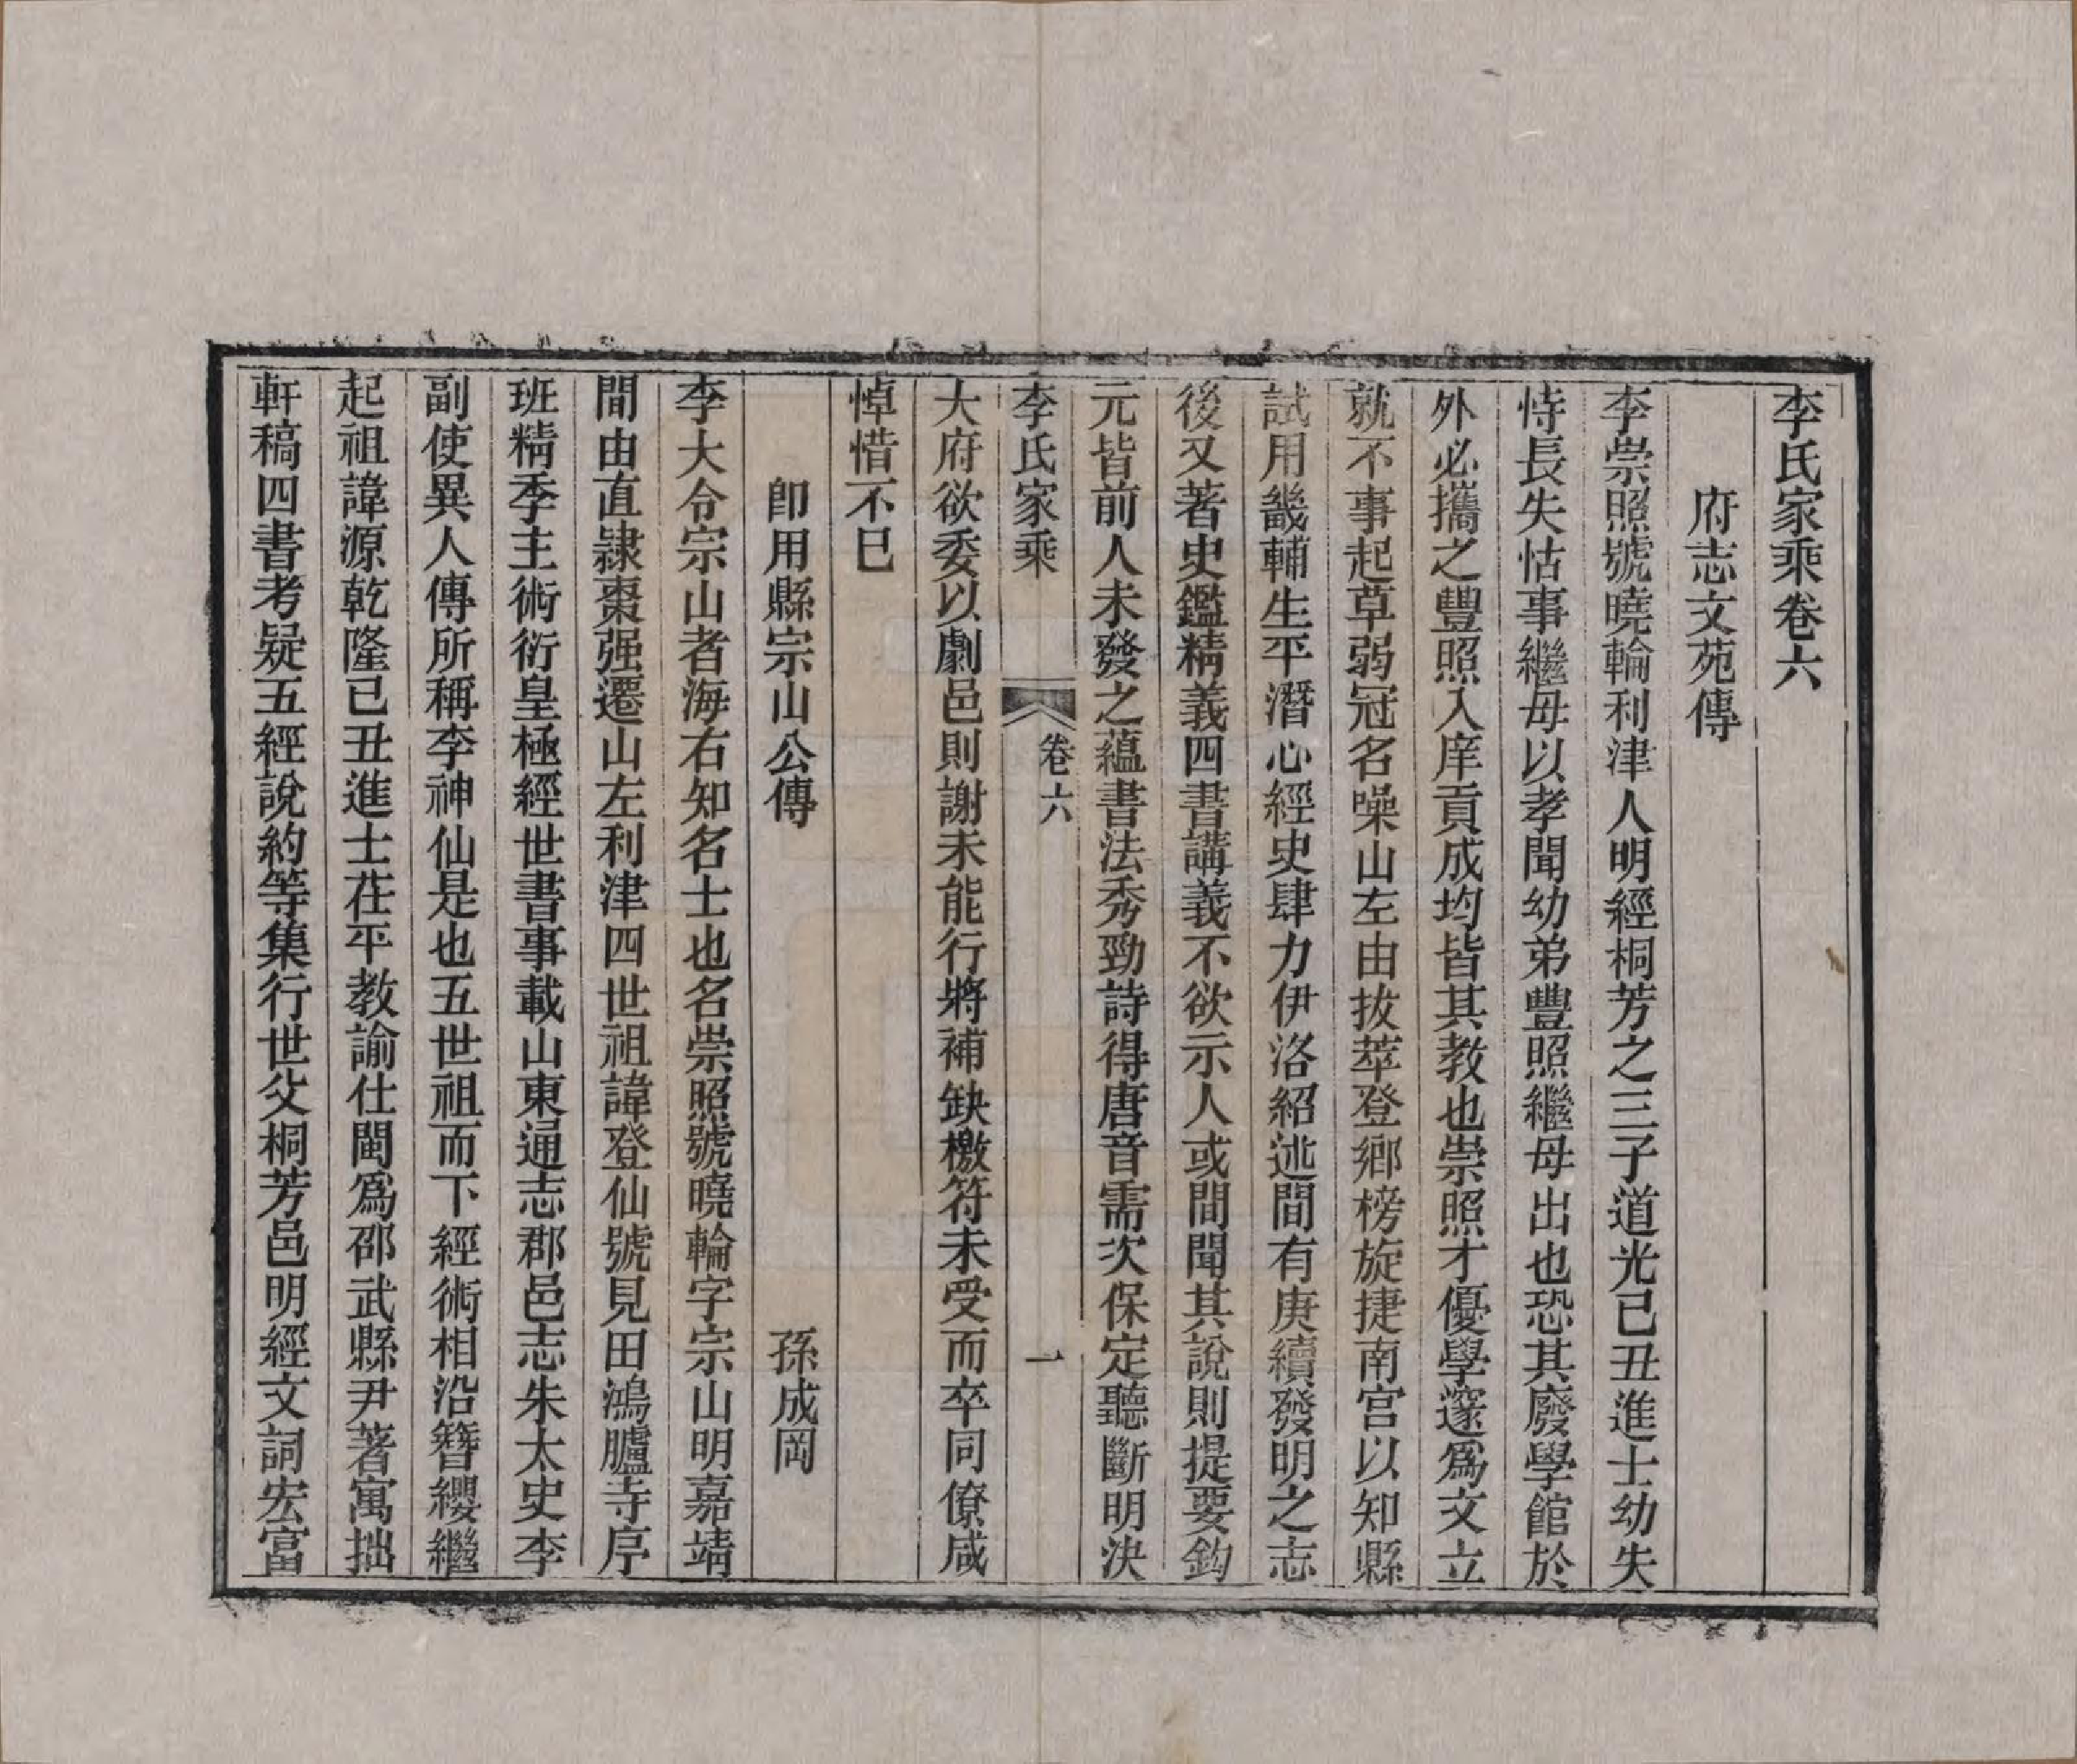 李氏家乘卷六
府志文苑傳
李崇照號曉輪利津人明經桐芳之三子道光己丑進士幼失
恃長失怙事繼母以孝聞幼弟豐照繼母出也恐其廢學館於
外必攜之豐照入庠貢成均皆其教也崇照才優學邃爲文立
就不事起草弱冠名噪山左由拔萃登鄉榜旋捷南宮以知縣
試用畿輔生平潛心經史肆力伊洛紹述間有庚續發明之志
後又著史鑑精義四書講義不欲示人或間聞其說則提要鈎
元皆前人未發之蘊書法秀勁詩得唐音需次保定聽斷明決
李氏家乘 卷六 一
大府欲委以劇邑則謝未能行將補缺檄符未受而卒同僚咸
悼惜不已
卽用縣宗山公傳 孫成岡
李大令宗山者海右知名士也名崇照號曉輪字宗山明嘉靖
間由直隷棗强遷山左利津四世祖諱登仙號見田鴻臚寺序
班精季主術衍皇極經世書事載山東通志郡邑志朱太史李
副使異人傳所稱李神仙是也五世祖而下經術相沿簪纓繼
起祖諱源乾隆己丑進士茌平教諭仕閩爲邵武縣尹著寓拙
軒稿四書考疑五經說約等集行世父桐芳邑明經文詞宏富